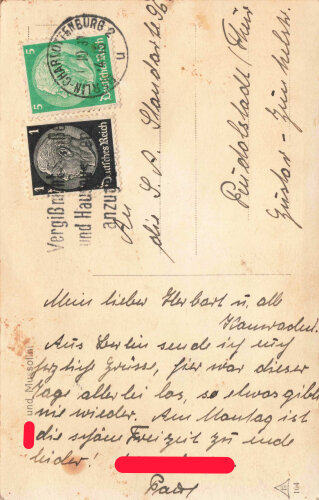 BERLIN-CHARLOTTENBURG 2
n
5
5
Deutsches Reich
1
1
Deutsches Reich
Vergiß
und Haus
anzu
An
die S.A. Standarte 96
Rudolstadt/Thür
Gustav-
Mein lieber Herbert u. all
Kameraden.
Aus Berlin send ich euch
herzliche Grüsse, hier war dieser
Tage allerlei los, so etwas gibts
nie wieder. Am Montag ist
die schöne Freizeit zu ende
leider!
und Mussolini